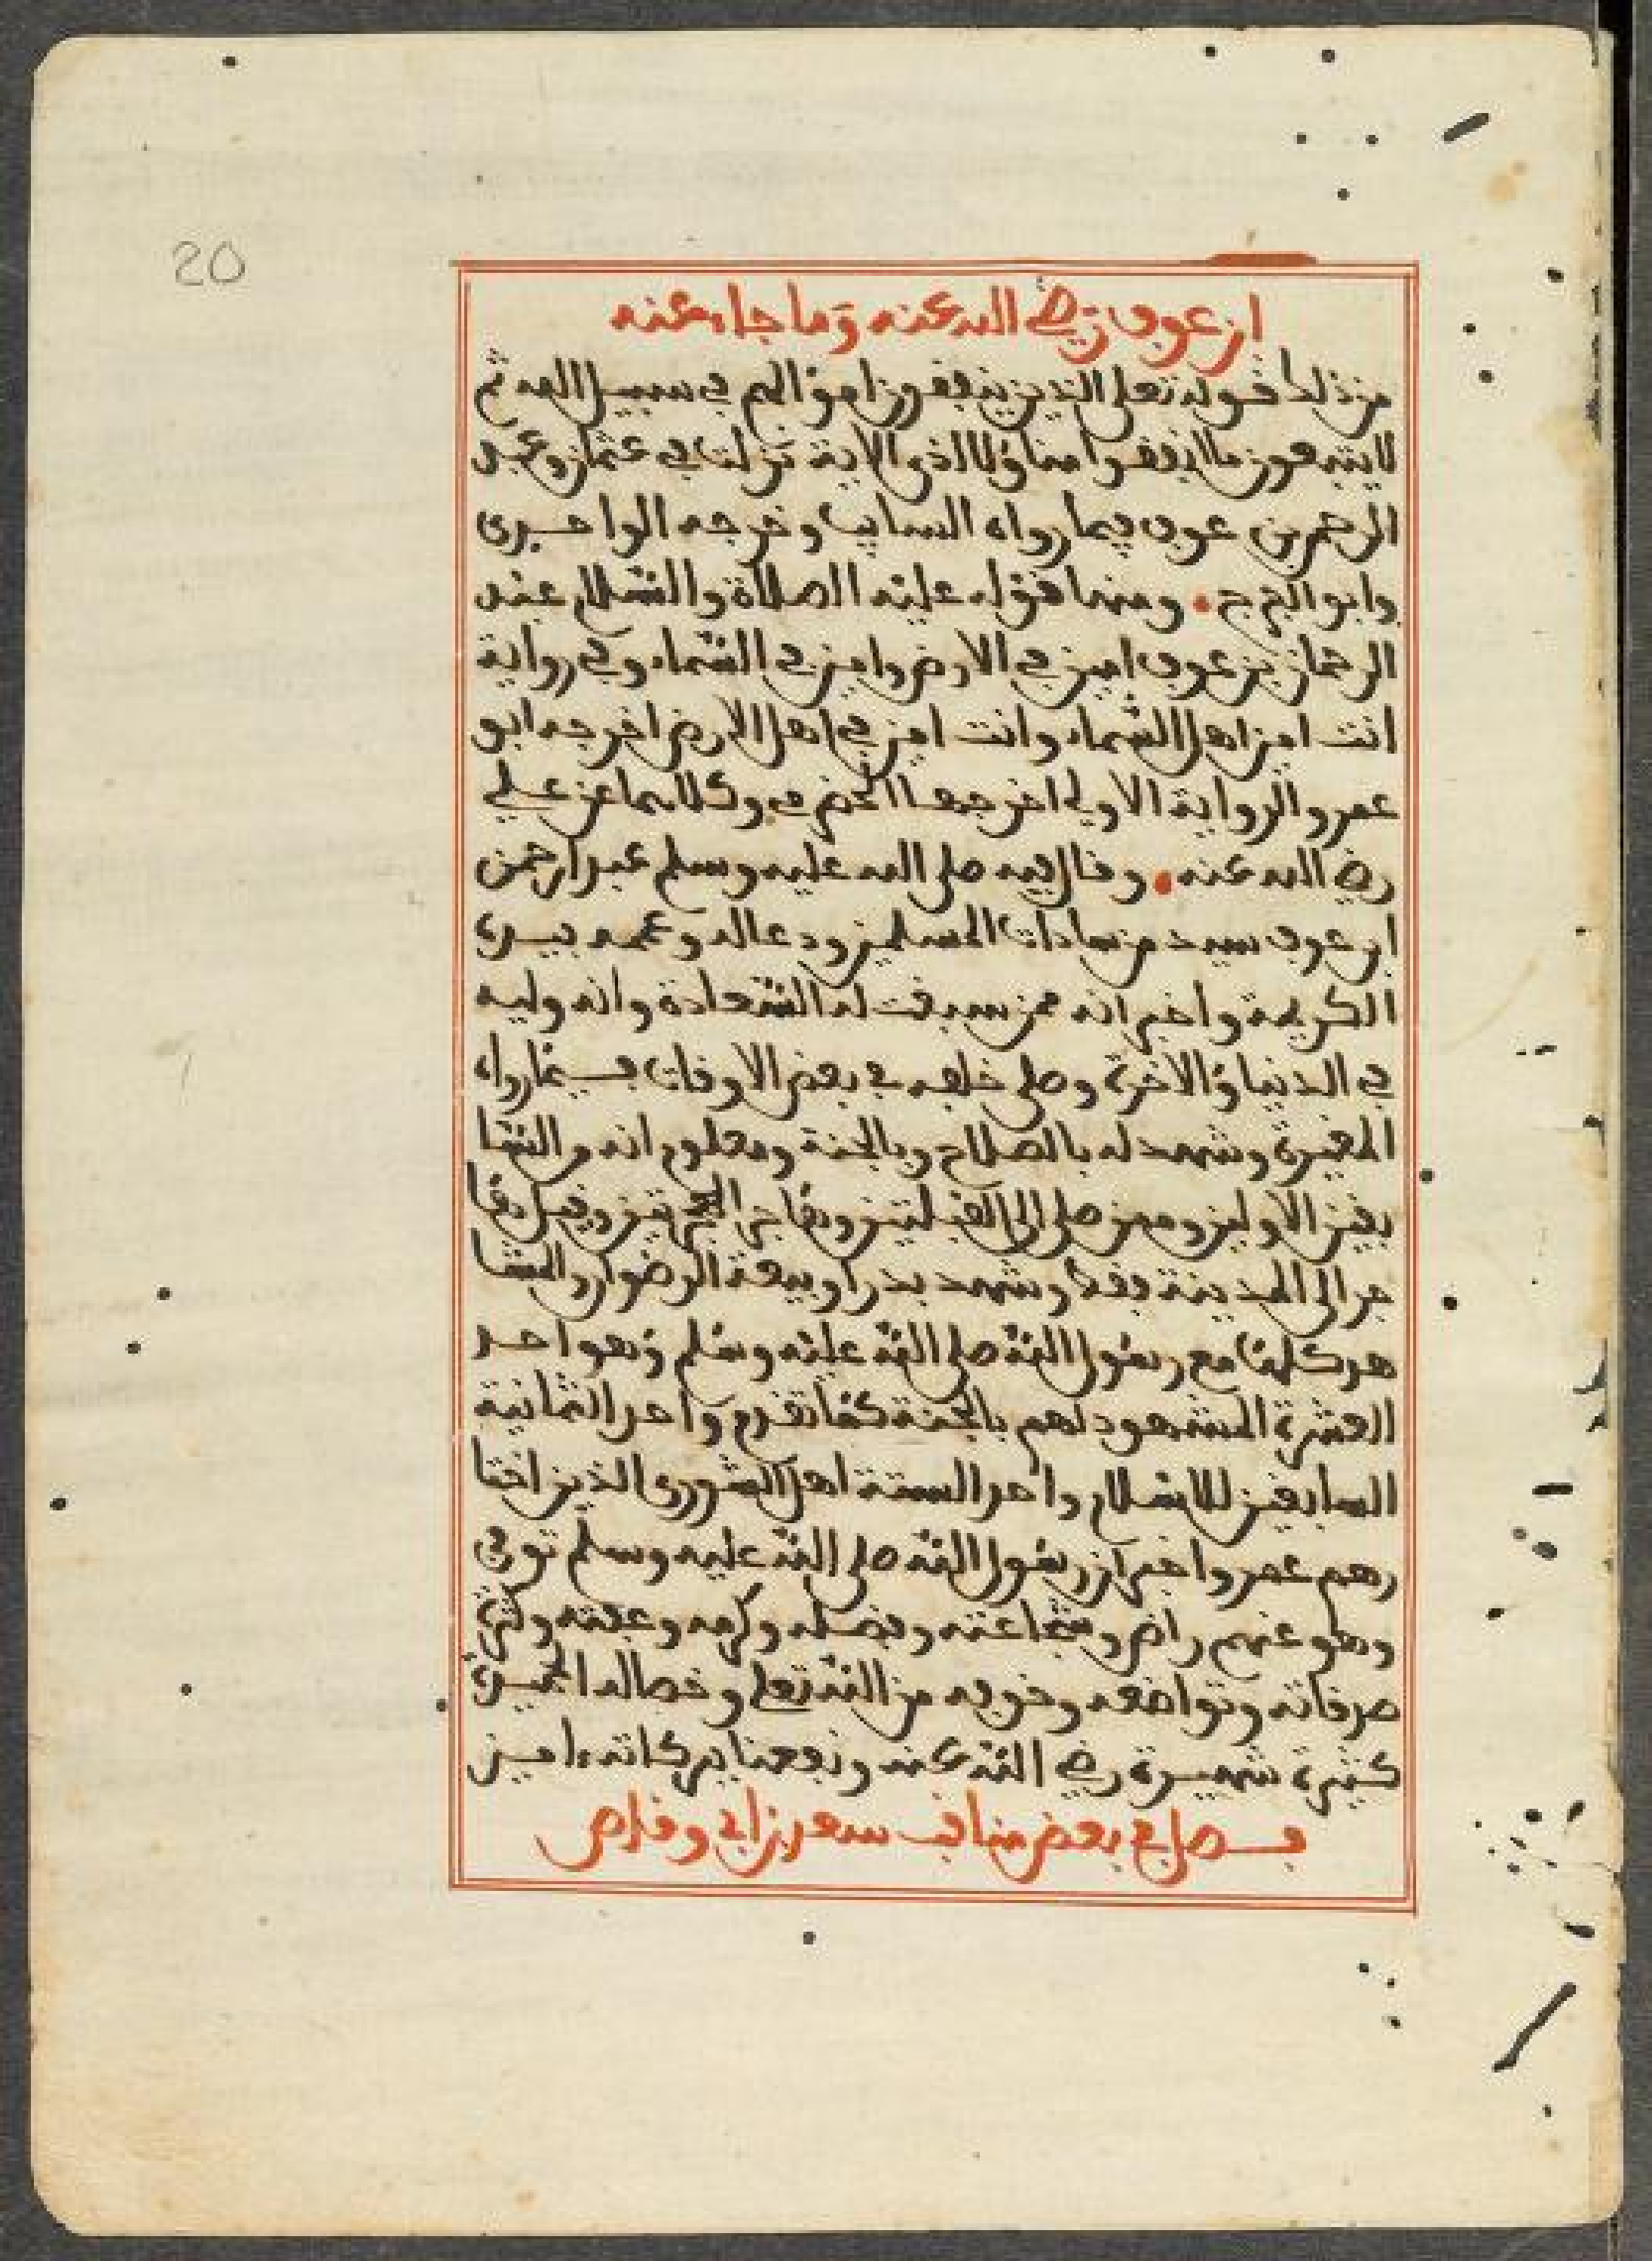 20
ابن عوف رضي الله عنه وما جاء عنه
من ذلك قوله تعلى الذين ينفقون اموالهم في سبيل الله ثم
لا يتبعون ما انفقوا منا ولا اذى الاية نزلت في عثمان وعبد
الرحمن بن عوف فيما رواه السايب وخرجه الواحدي
وابو الفرج . ومنها قوله عليه الصلاة والسلام عبد
الرحمان بن عوف امين في الارض وامين في السماء وفي رواية
انت امين اهل السماء وانت امين في اهل الارض اخرجه ابو
عمر والرواية الاولى اخرجها الحضرمي وكلاهما عن علي
رضي الله عنه . وقال فيه صلى الله عليه وسلم عبد الرحمن
ابن عوف سيد من سادات المسلمين ودعا له وعممه بيده
الكريمة واخبر انه ممن سبقت له السعادة وانه وليه
في الدنيا والاخرة وصلى خلفه في بعض الاوقات فيما رواه
المغيرة وشهد له بالصلاح وبالجنة ومعلوم انه من السا
بقين الاولين وممن صلى الى القبلتين وهاجر الهجرتين وقيل ها
جر الى المدينة فقط وشهد بدرا وبيعة الرضوان والمشا
هد كلها مع رسول الله صلى الله عليه وسلم وهو احد
العشرة المشهود لهم بالجنة كما تقدم واحد الثمانية
السابقين للاسلام واحد الستة اهل الشورى الذين اختا
رهم عمر واخبر ان رسول الله صلى الله عليه وسلم توفي
وهو عنهم راض وشجاعته وفضله وكرمه وعفته وكثرة
صدقاته وتواضعه وخوفه من الله تعلى وخصاله الحميدة
كثيرة شهيرة رضي الله عنه ونفعنا ببركاته ءامين
فصل في بعض مناقب سعد بن ابي وقاص